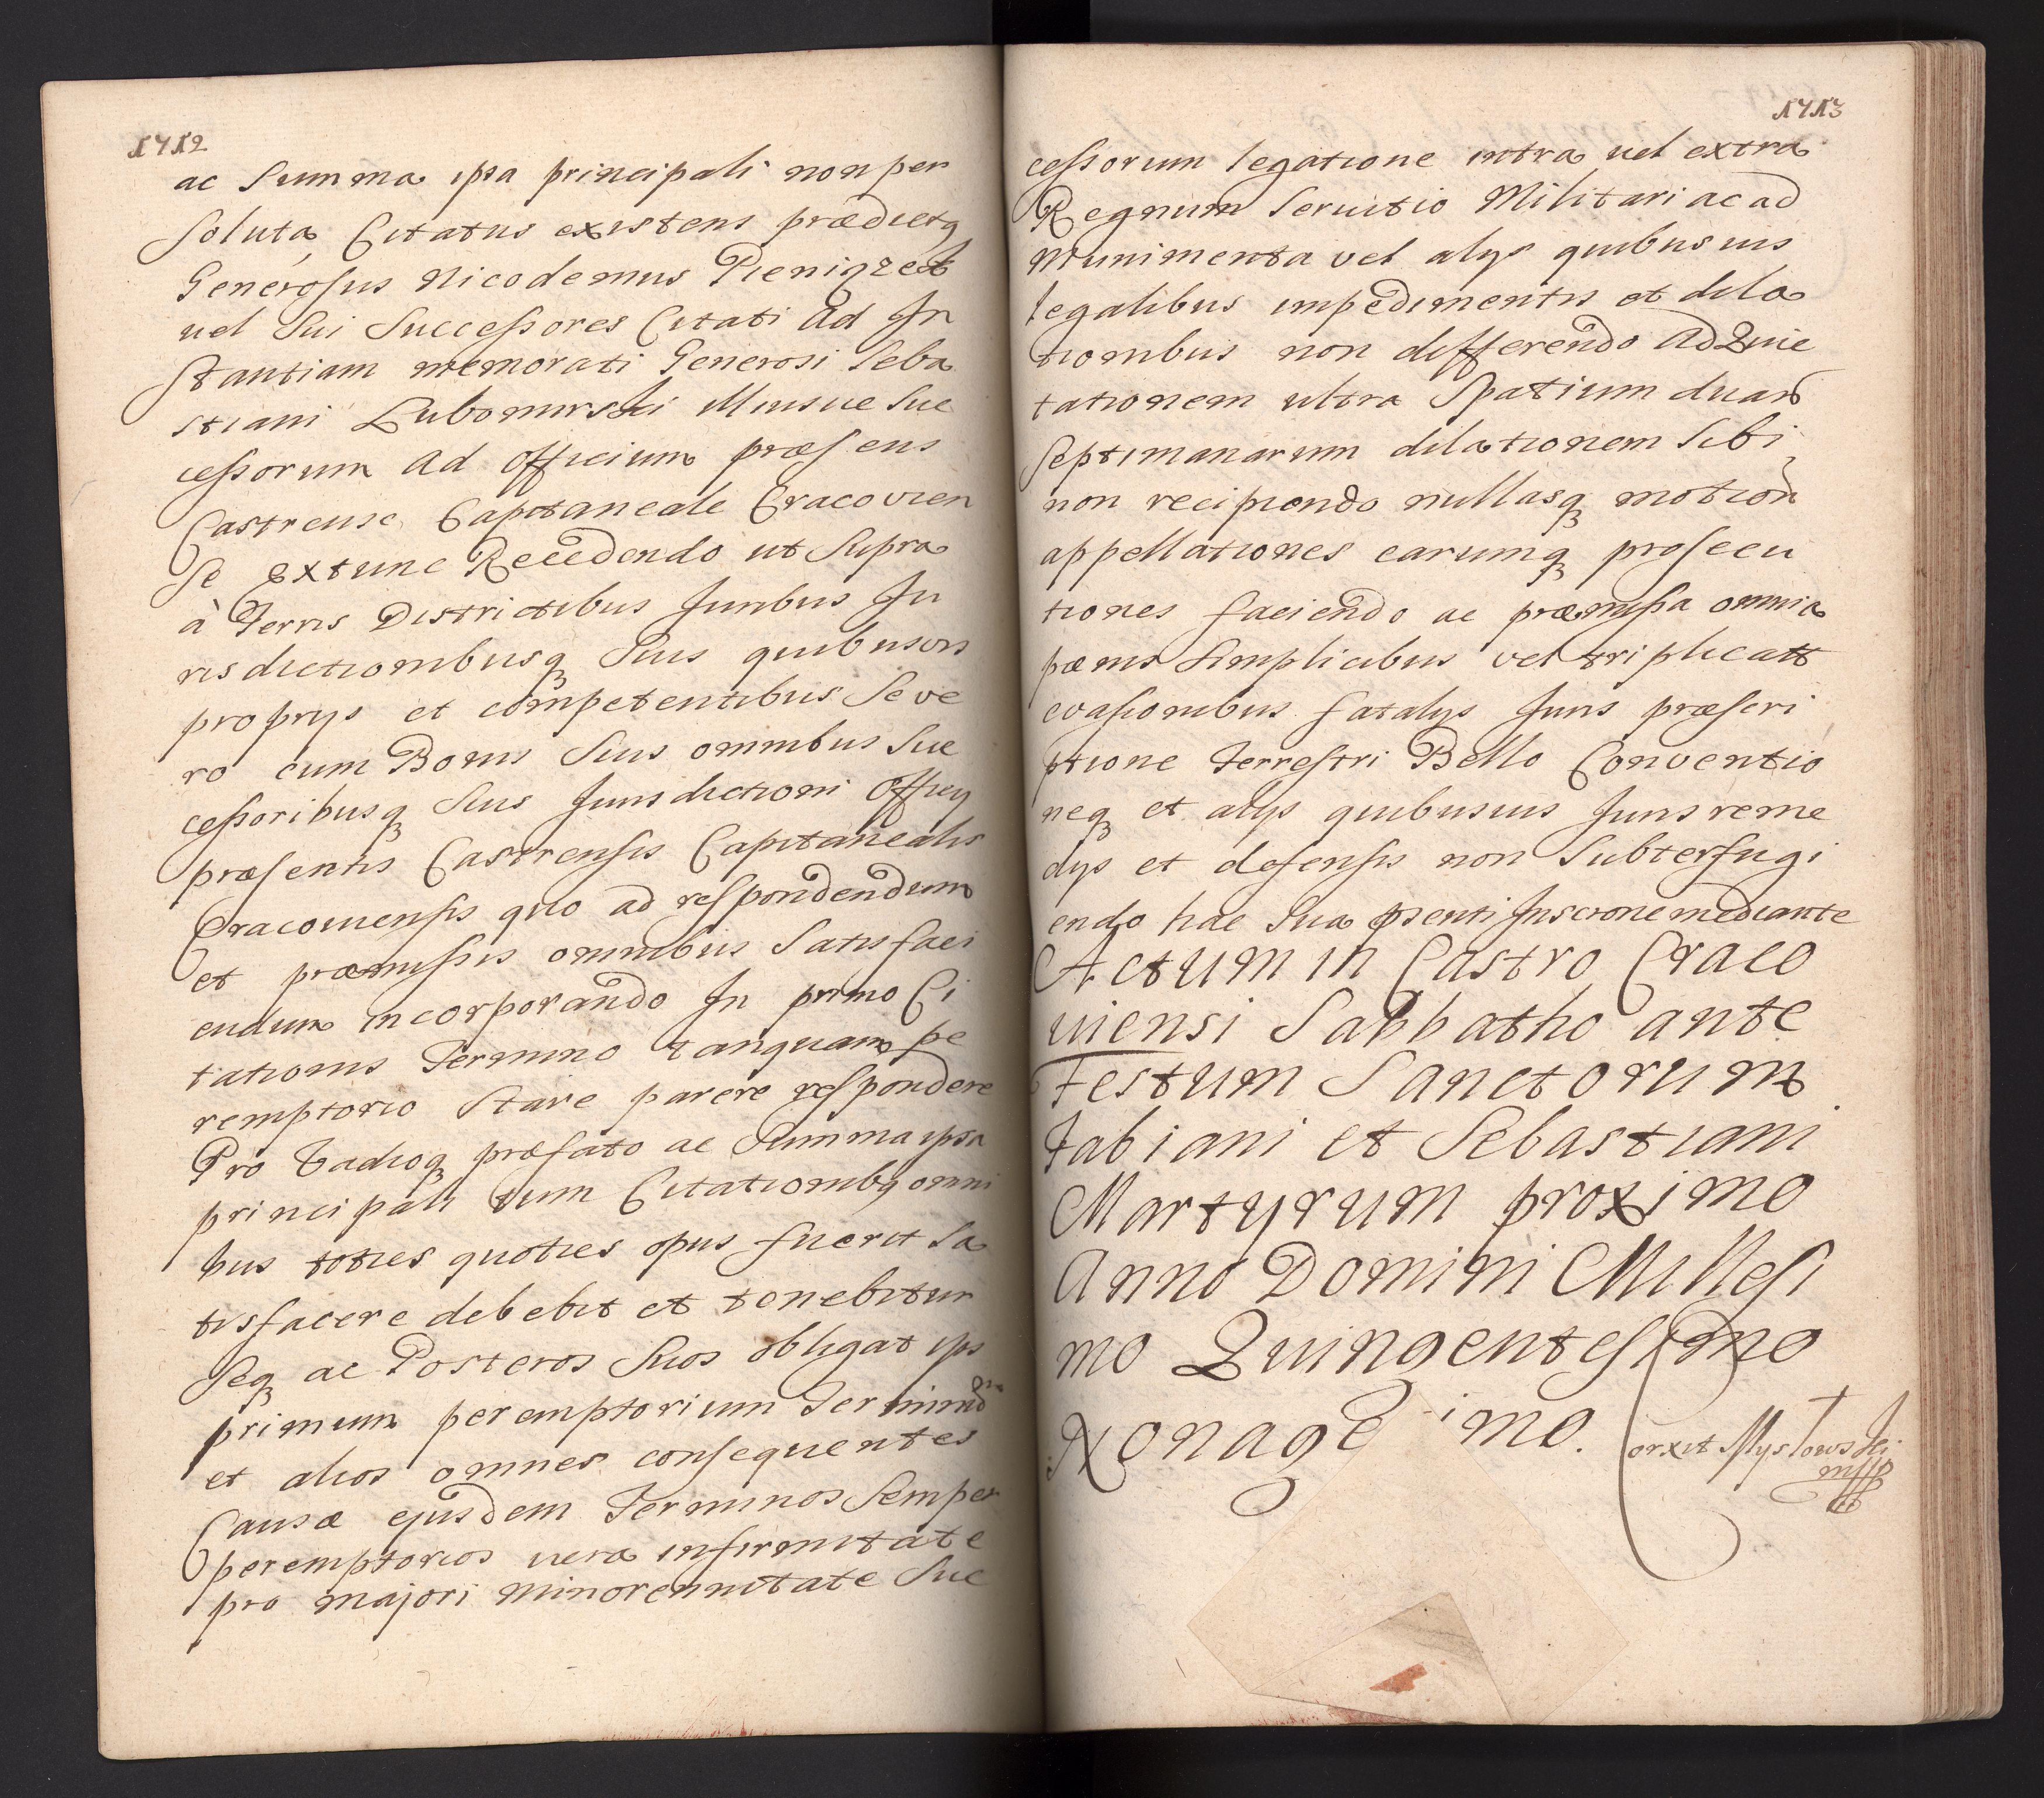 1712
ac Summa ipsa principali non per
soluta, Citatus existens prædictq
Generosus Nicodemus Pieniązek
uel Sui Successores Citati ad In
stantiam memorati Generosi Seba
stiani Lubomirski illiusue Suc
cessorum ad Officium præsens
Castrense Capitaneale Cracovien
se extunc Recedendo ut Supra
à Terris Districtibus Juribus Ju
risdictionibusq Suis quibusvis
proprijs et competentibus Seve
ro cum Bonis Suis omnibus Suc
cessoribusq Suis Jurisdictioni Officij
præsentis Castrensis Capitanealis
Cracouiensis quo ad respondendum
et præmissis omnibus Satisfaci
endum incorporando In primo Ci
tationis Termino tanquam pe
remptorio Stare parere respondere
Pro Vadioq præfato ac Summa ipsa
principali tum Citationibq omni
bus toties quoties opus fuerit Sa
tisfacere debebit et tenebitur
Seq ac Posteros Suos obligat ips
primum peremptorium Terminũ
et alios omnes consequentes
Causæ ejusdem Terminos Semper
peremptorios uera infirmitate
pro majori minorennitate Suc
1713
cessorum legatione intra uel extra
Regnum Seruitio Militari ac ad
Munimenta vel alijs quibusuis
legalibus impedimentis et dila
tionibus non differendo ad Quie
tationem ultra Spatium duar
Septimanarum dilationem Sibi
non recipiendo nullasq motion
appellationes earumq prosecu
tiones faciendo ac præmissa omnia
pænis Simplicibus vel triplicatt
evasionibus fatalys Juris præscri
ptione Terrestri Bello Conventio
neq et alijs quibusuis Juris reme
dijs et defensis non Subterfugi
endo hac Sua psenti Inscrione mediante
Actum in Castro Craco
uiensi Sabbatho ante
Festum Sanctorum
Fabiani et Sebastiani
Martyrum proximo
Anno Domini Millesi
mo Quingentesimo
Nonagesimo.
Corxit Mysłowski
mpp